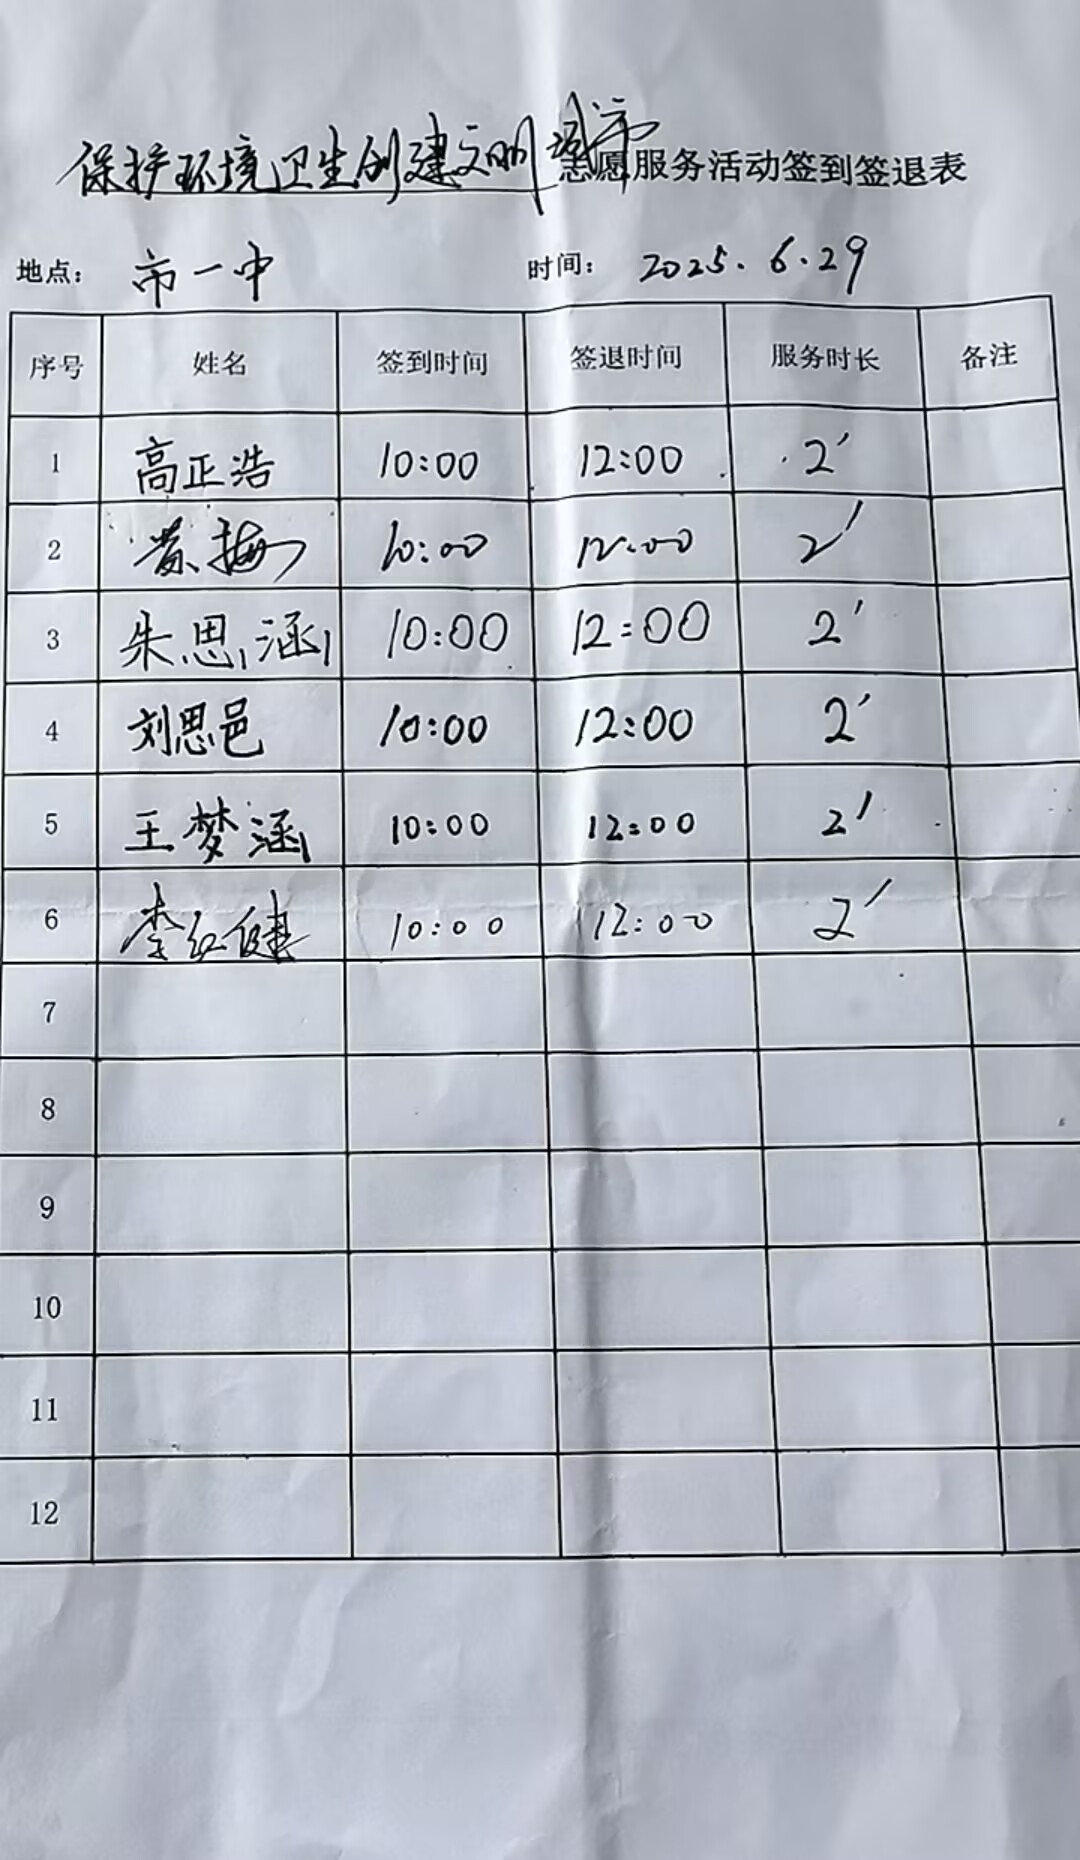 保护环境卫生创建文明城市志愿服务活动签到签退表
地点： 市一中 时间： 2025.6.29
序号 姓名 签到时间 签退时间 服务时长 备注
1 高正浩 10:00 12:00 2′
2 黄梅 10:00 12:00 2′
3 朱思涵 10:00 12:00 2′
4 刘思邑 10:00 12:00 2′
5 王梦涵 10:00 12:00 2′
6 李红健 10:00 12:00 2′
7
8
9
10
11
12